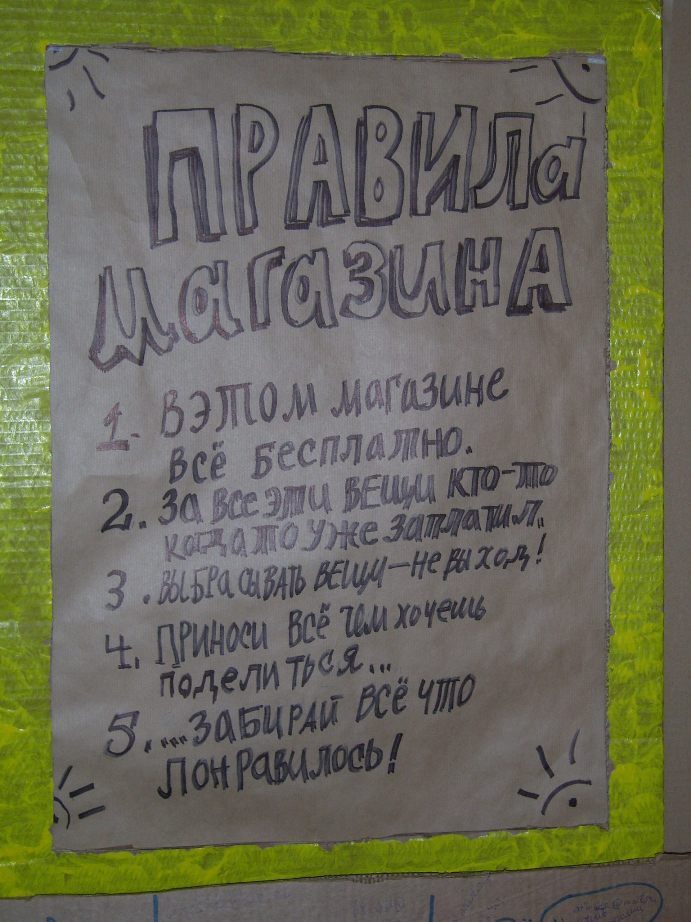 ПРАВИЛа
МагаЗИНА
1. В ЭТОМ магазине
всё бесплатно.
2. За все эти вещи кто-то
когда то уже заплатил..
3. выбрасывать вещи — не выход!
4. ПРИНОСИ ВСЁ чем хочешь
поделиться...
5. ....Забирай всё что
понравилось!